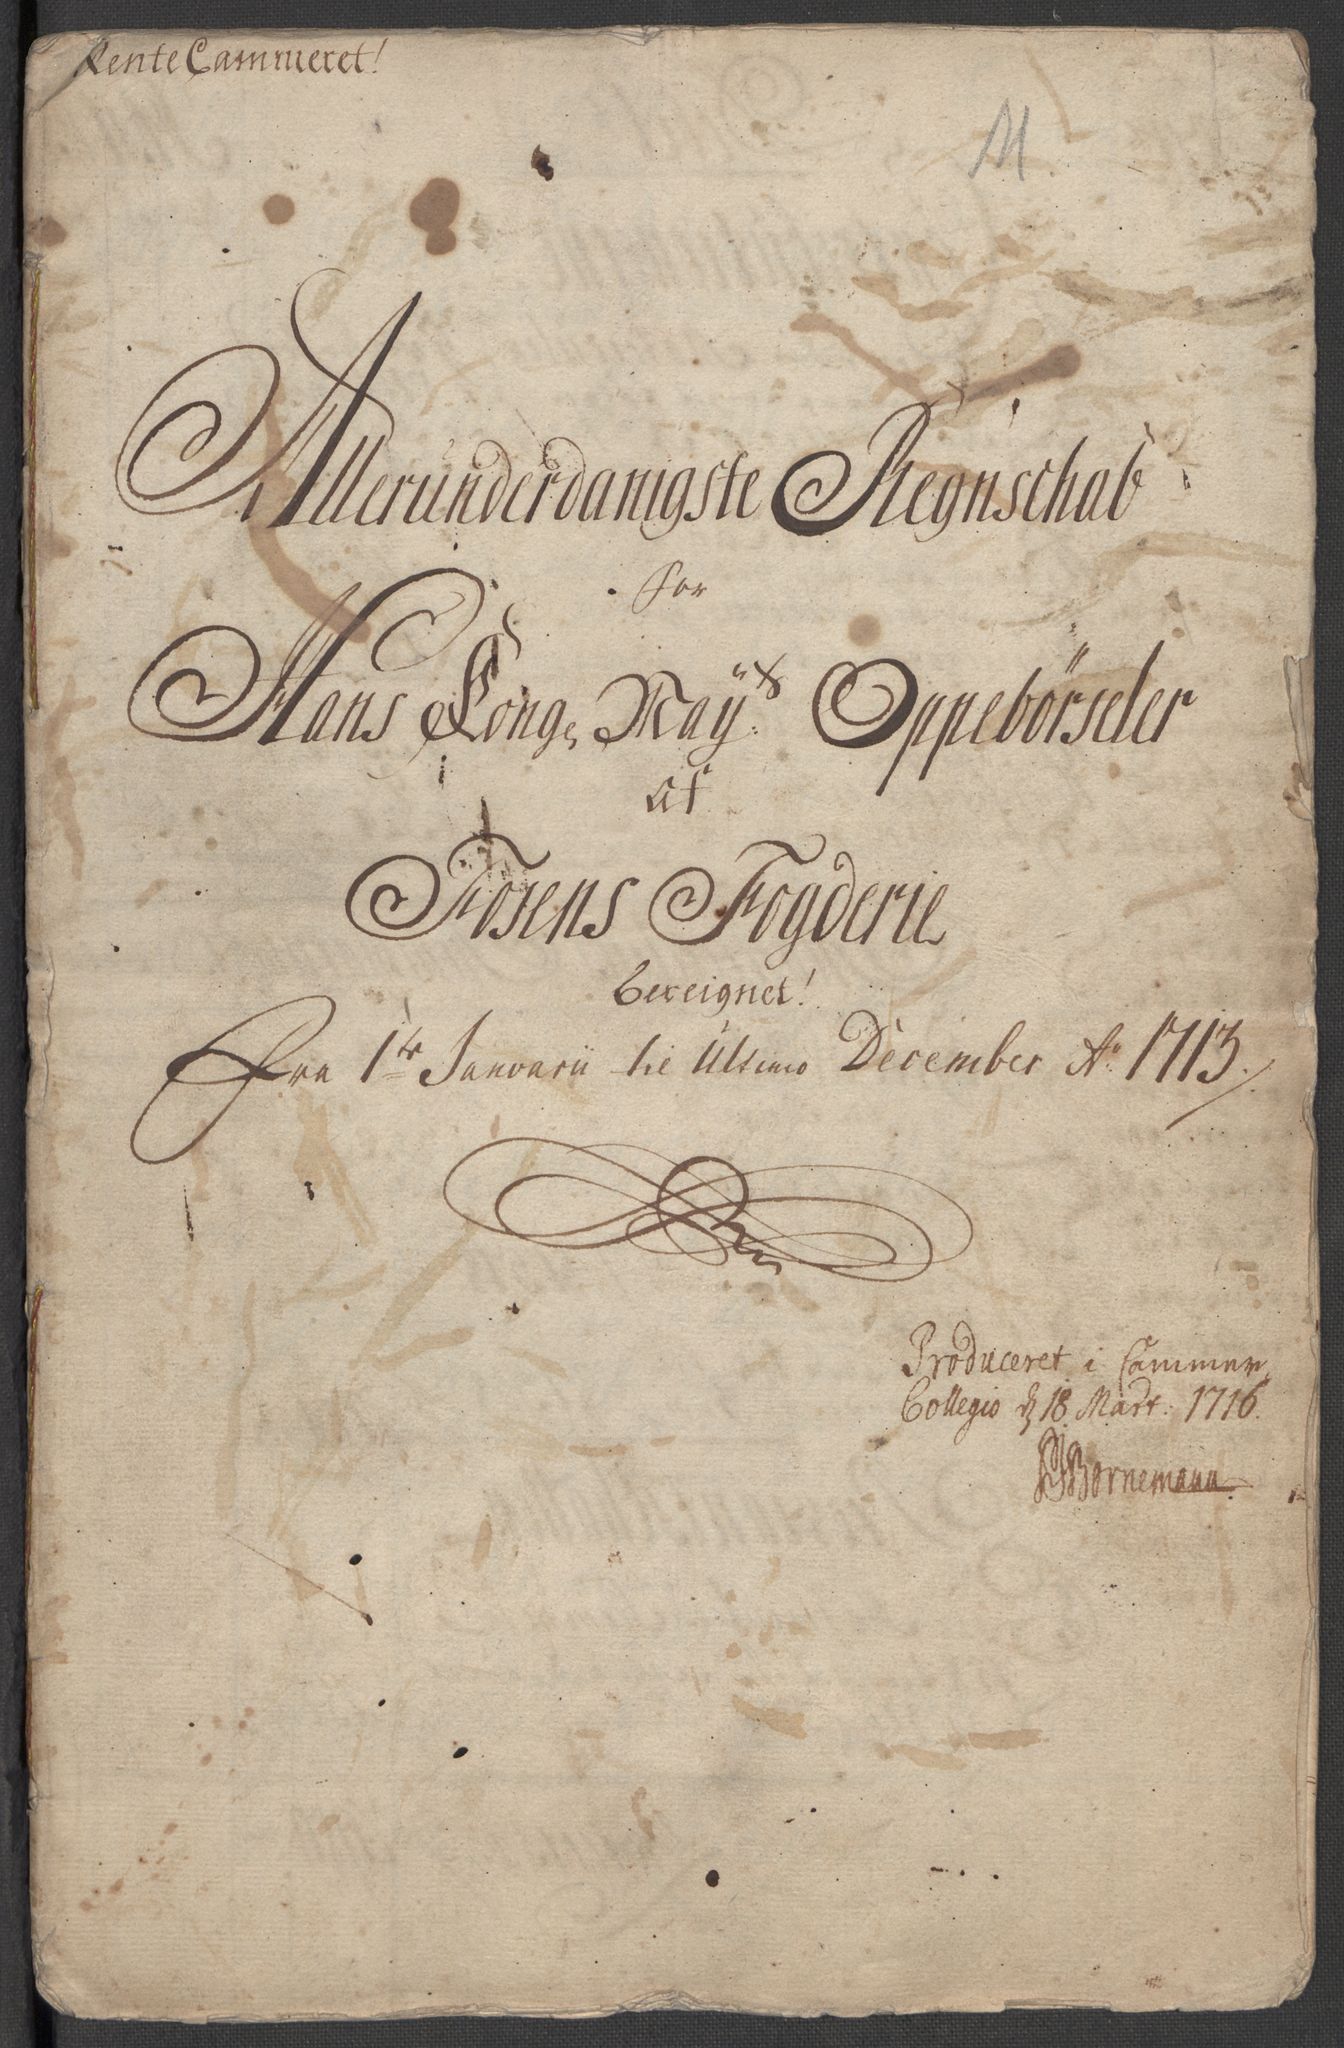 Rente Cammeret!
M
Allerunderdanigste Regnschab
for
Hans Kong. Mayts Oppebörseler
af
Fosens Fogderie
bereignet!
Fra 1te Januarii til Ultimo December Ao 1713.
Produceret i Cammer
Collegio d 18 Mart: 1716.
Bornemann.